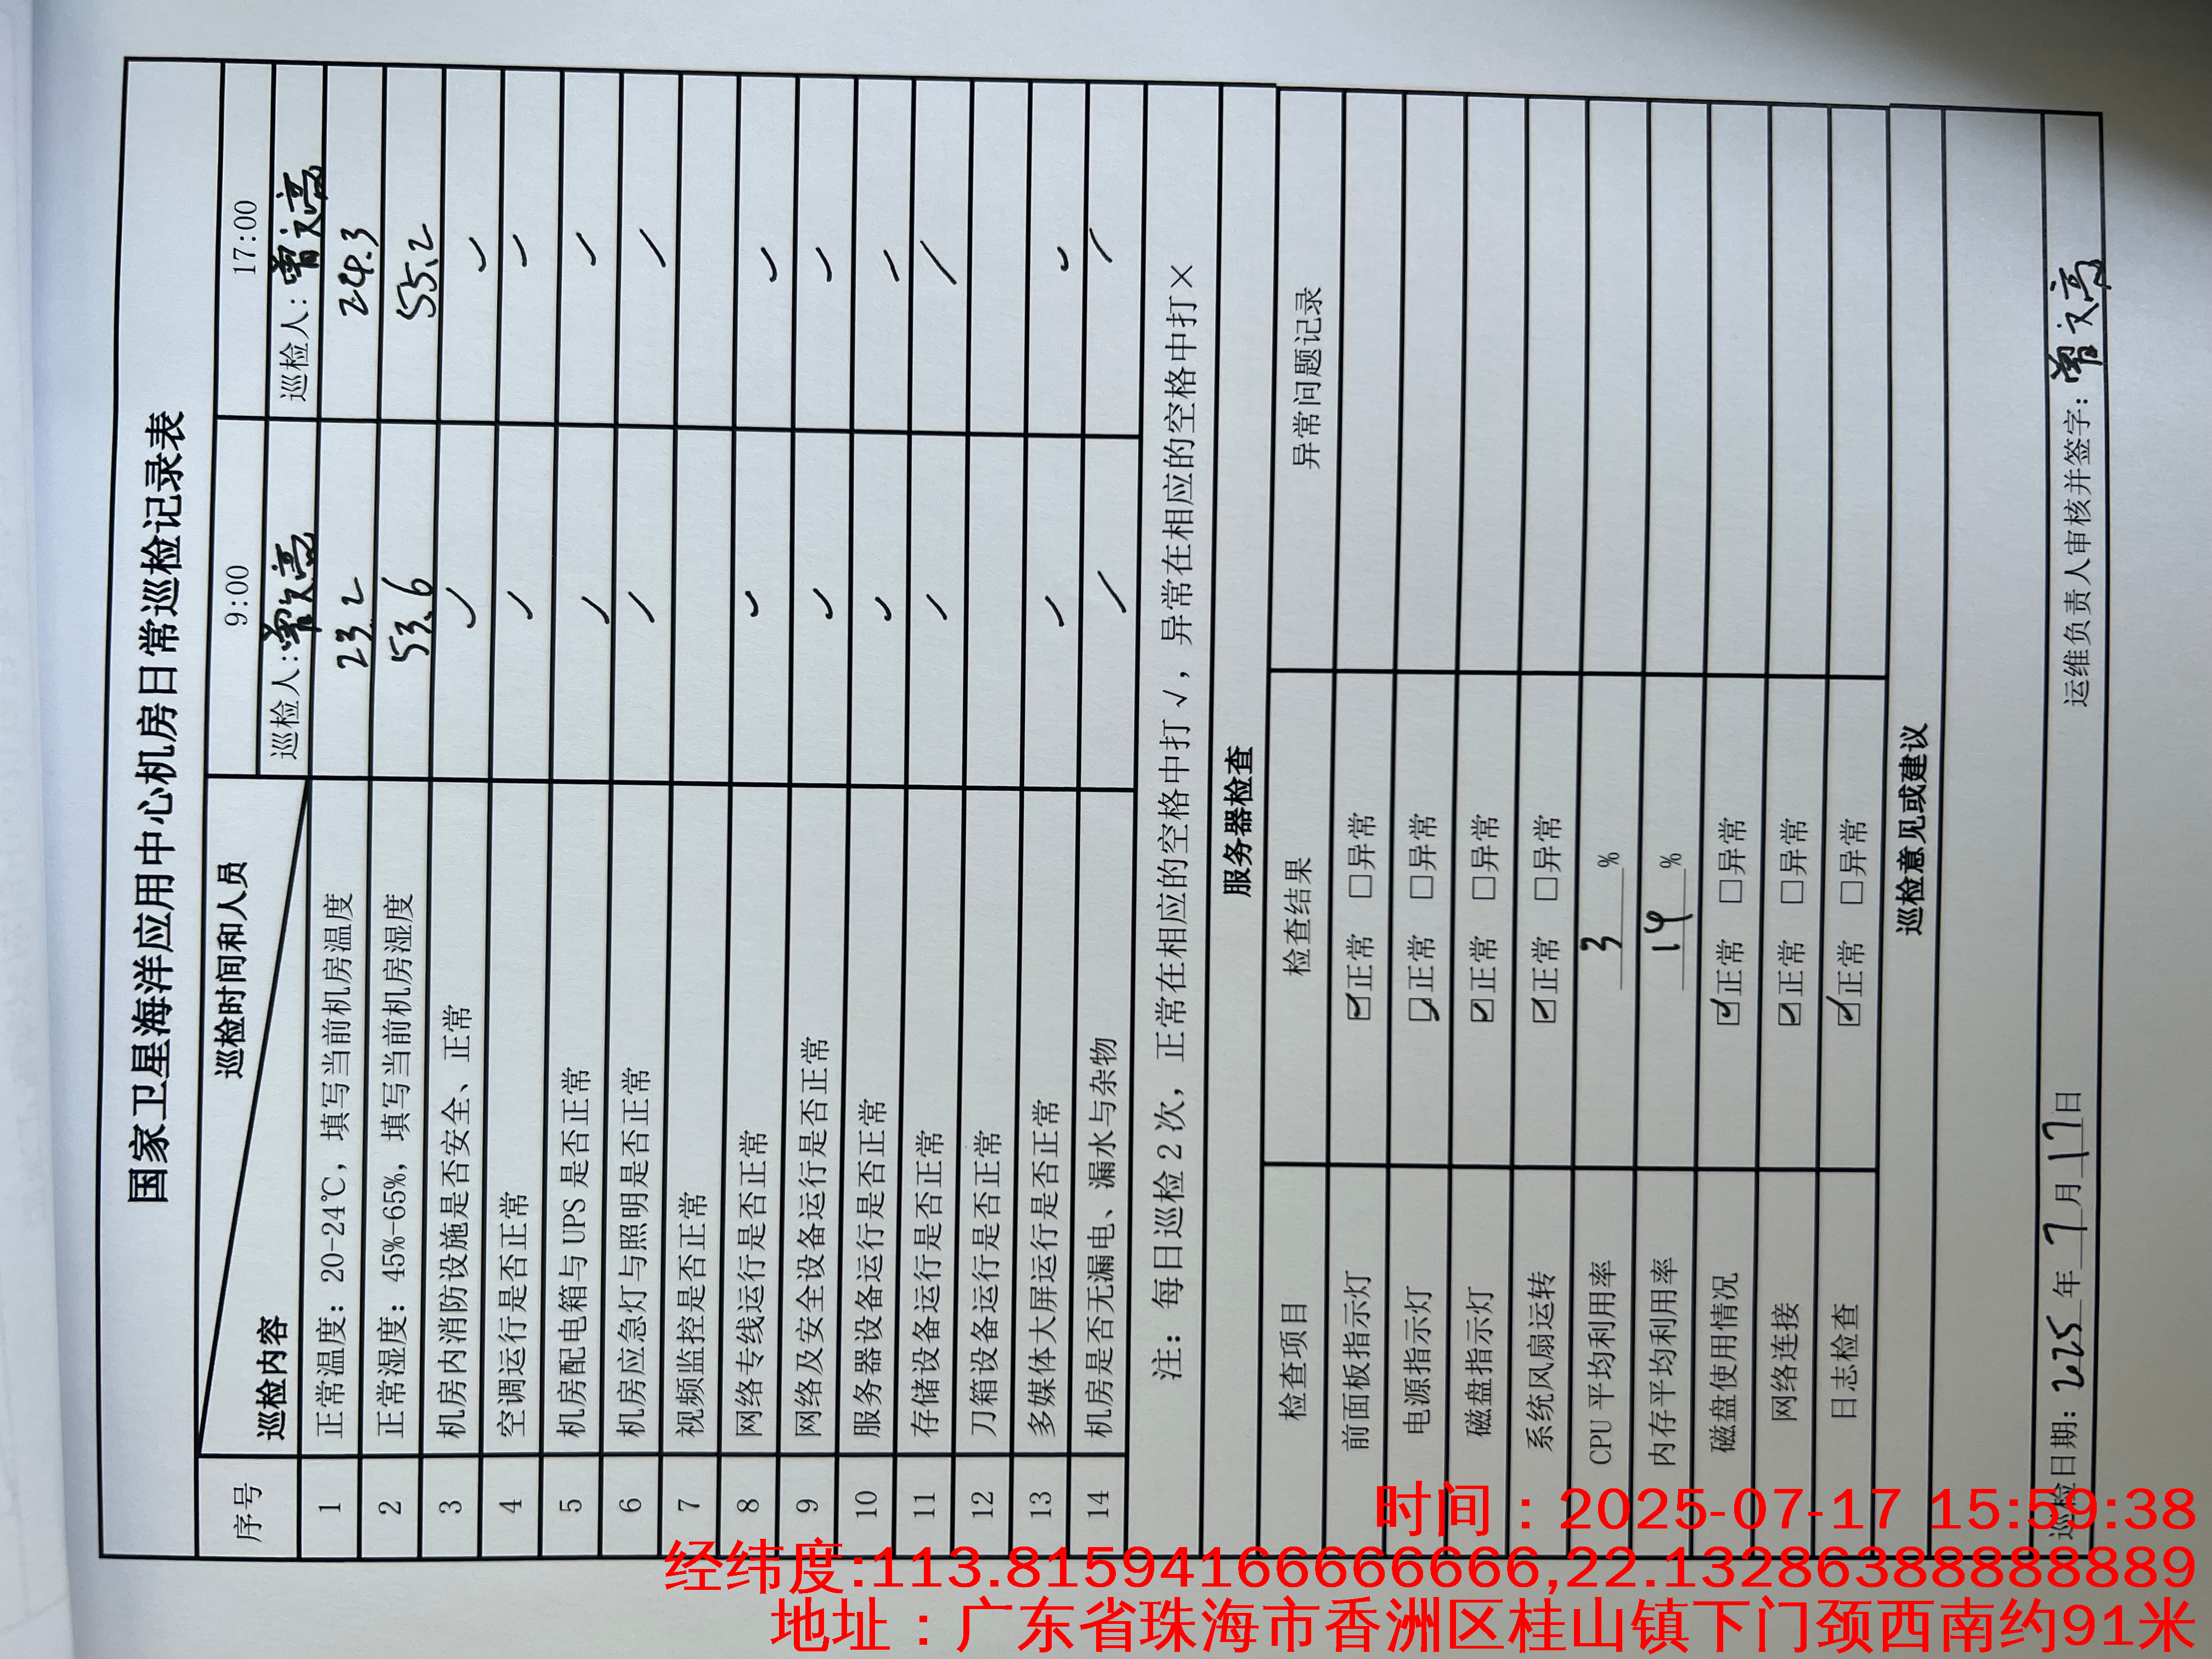 国家卫星海洋应用中心机房日常巡检记录表
序号 巡检内容 巡检时间和人员 9:00 17:00
巡检人:曾文亮 巡检人:曾文亮
1 正常温度：20-24℃，填写当前机房温度 23.2 24.3
2 正常湿度：45%-65%，填写当前机房湿度 53.6 55.2
3 机房内消防设施是否安全、正常 ✓ ✓
4 空调运行是否正常 ✓ ✓
5 机房配电箱与UPS是否正常 ✓ ✓
6 机房应急灯与照明是否正常 ✓ ✓
7 视频监控是否正常
8 网络专线运行是否正常 ✓ ✓
9 网络及安全设备运行是否正常 ✓ ✓
10 服务器设备运行是否正常 ✓ ✓
11 存储设备运行是否正常 ✓ ✓
12 刀箱设备运行是否正常
13 多媒体大屏运行是否正常 ✓ ✓
14 机房是否无漏电、漏水与杂物 ✓ ✓
注：每日巡检2次，正常在相应的空格中打√，异常在相应的空格中打×
服务器检查
检查项目 检查结果 异常问题记录
前面板指示灯 ☑正常 □异常
电源指示灯 ☑正常 □异常
磁盘指示灯 ☑正常 □异常
系统风扇运转 ☑正常 □异常
CPU平均利用率 3 %
内存平均利用率 14 %
磁盘使用情况 ☑正常 □异常
网络连接 ☑正常 □异常
日志检查 ☑正常 □异常
巡检意见或建议
巡检日期：2025年7月17日 运维负责人审核并签字：曾文亮
时间：2025-07-17 15:59:38
经纬度:113.81594166666666,22.13286388888889
地址：广东省珠海市香洲区桂山镇下门颈西南约91米